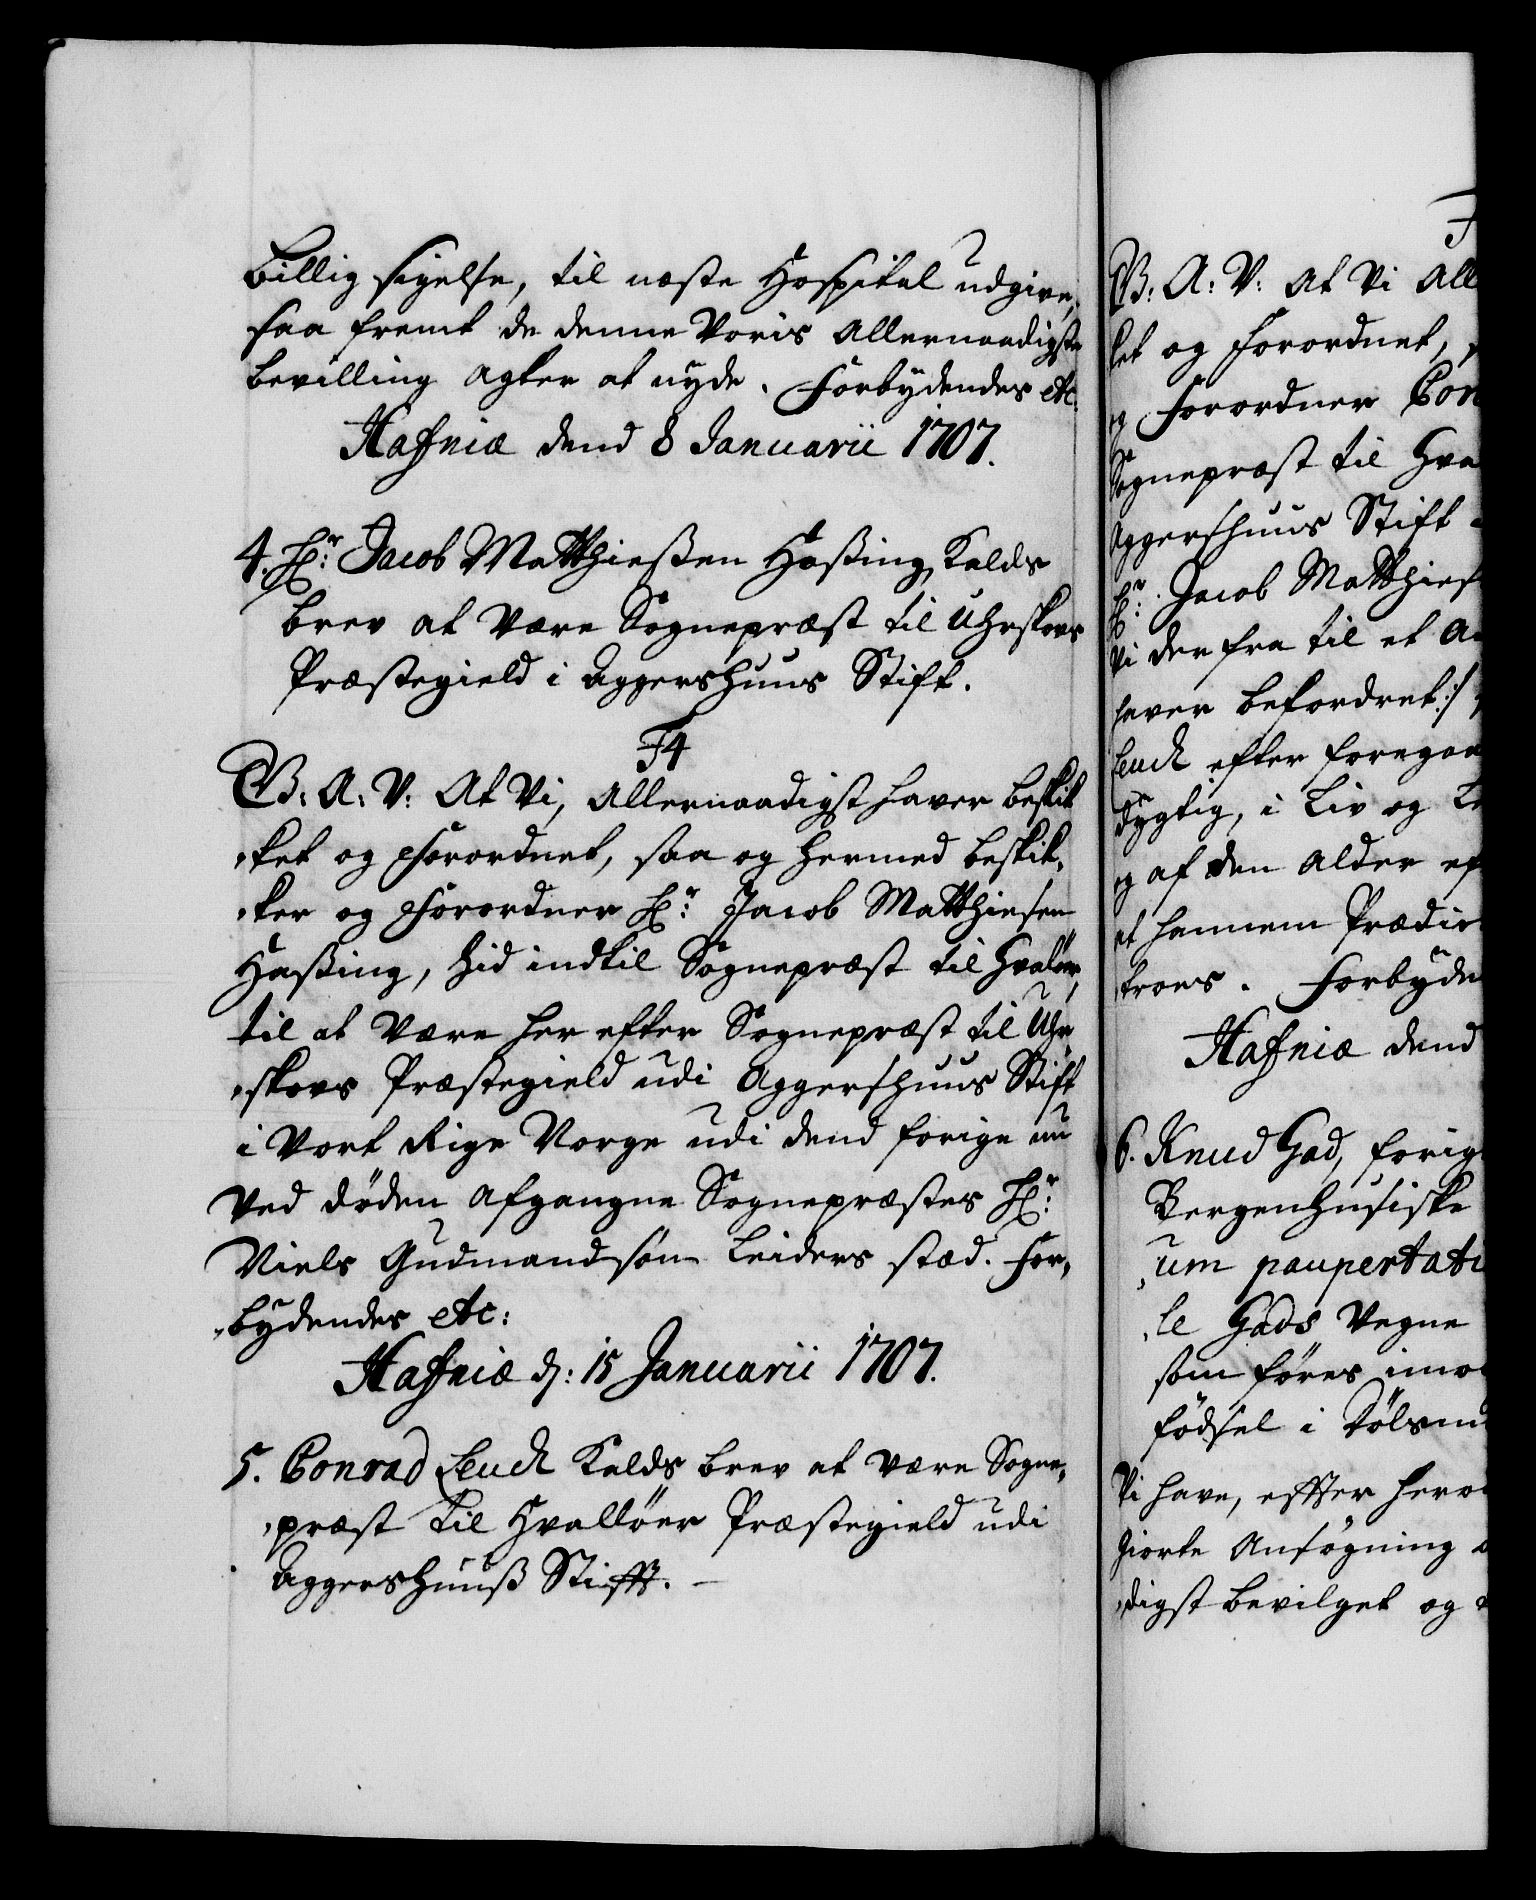 billig sigelse, til næste Hospital udgive,
saa fremt de denne Voris Allernaadigste
bevilling agter at nyde. Forbydendes etc.
Hafniæ dend 8 Januarii 1707.
4. Hr: Jacob Matthießen Haßing Kalds
brev at være Sognepræst til Uhrskovs
Præstegield i Aggershuus Stift.
F4
G: A: V: At Vi, Allernaadigst haver beskik
,ket og forordnet, saa og hermed beskik,
,ker og forordner Hr: Jacob Matthiesen
Haßing, hid indtil Sognepræst til Hvaløer,
til at være her efter Sognepræst til Uhr,
,skovs Præstegield udi Aggershuus Stift
i Vort Rige Norge udi dend forige nu
ved døden afgangne Sognepræstes Hr:
Niels Gudmandsøn Leiders stæd. For,
,bydendes etc:
Hafniæ d: 15 Januarii 1707.
5. Conrad Leuch Kalds brev at være Sogne,
,præst til Hvalløer Præstegield udi
Aggershuuß Stifft.
F
G: A: V: At Vi All
ket og forordnet,
og forordner Con
Sognepræst til Hva
Aggershuus Stift
Hr: Jacob Matthies
Vi der fra til et An
haver befordret :/
Leuch efter foregaa
dygtig, i Liv og Le
og af den Alder ef
at hannem Prædic
,troes. Forbyde
Hafniæ dend
6. Knud Gad, forig
Bergenhusiske
,um paupertati
,le Gads Vegne
som føres imod
fødsel i
Vi have, effter hero
giorte Ansøgning
,digst bevilget og